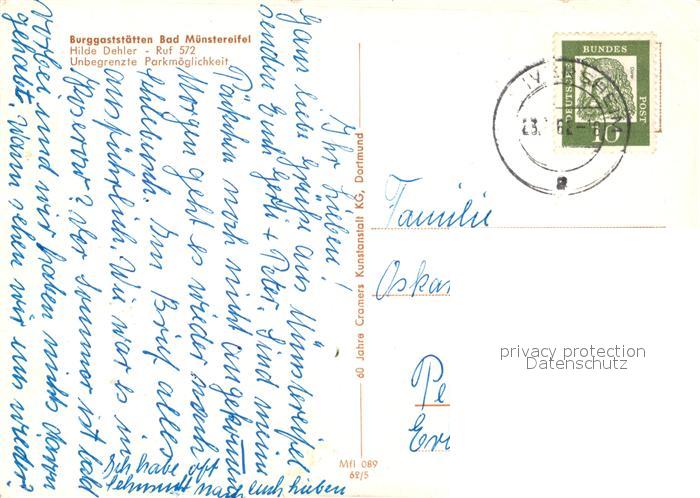 Burggaststätten Bad Münstereifel
Hilde Dehler - Ruf 572
Unbegrenzte Parkmöglichkeit
Ihr Lieben!
Ganz liebe Grüße aus Münstereifel
senden Euch Gerti + Peter. Sind meine
Päckchen noch nicht angekommen
Morgen geht es wieder nach
Im Brief alles
ausführlich. Wie war es in
Der Sommer ist bald
vorbei und wir haben nichts davon
gehabt. Wann sehen wir uns wieder?
Ich habe oft
Sehnsucht nach Euch Lieben
60 Jahre Cramers Kunstanstalt KG, Dortmund
Mfl 089
62/5
DEUTSCHE
BUNDES
POST
10
Familie
Oska
Pe
privacy protection
Datenschutz